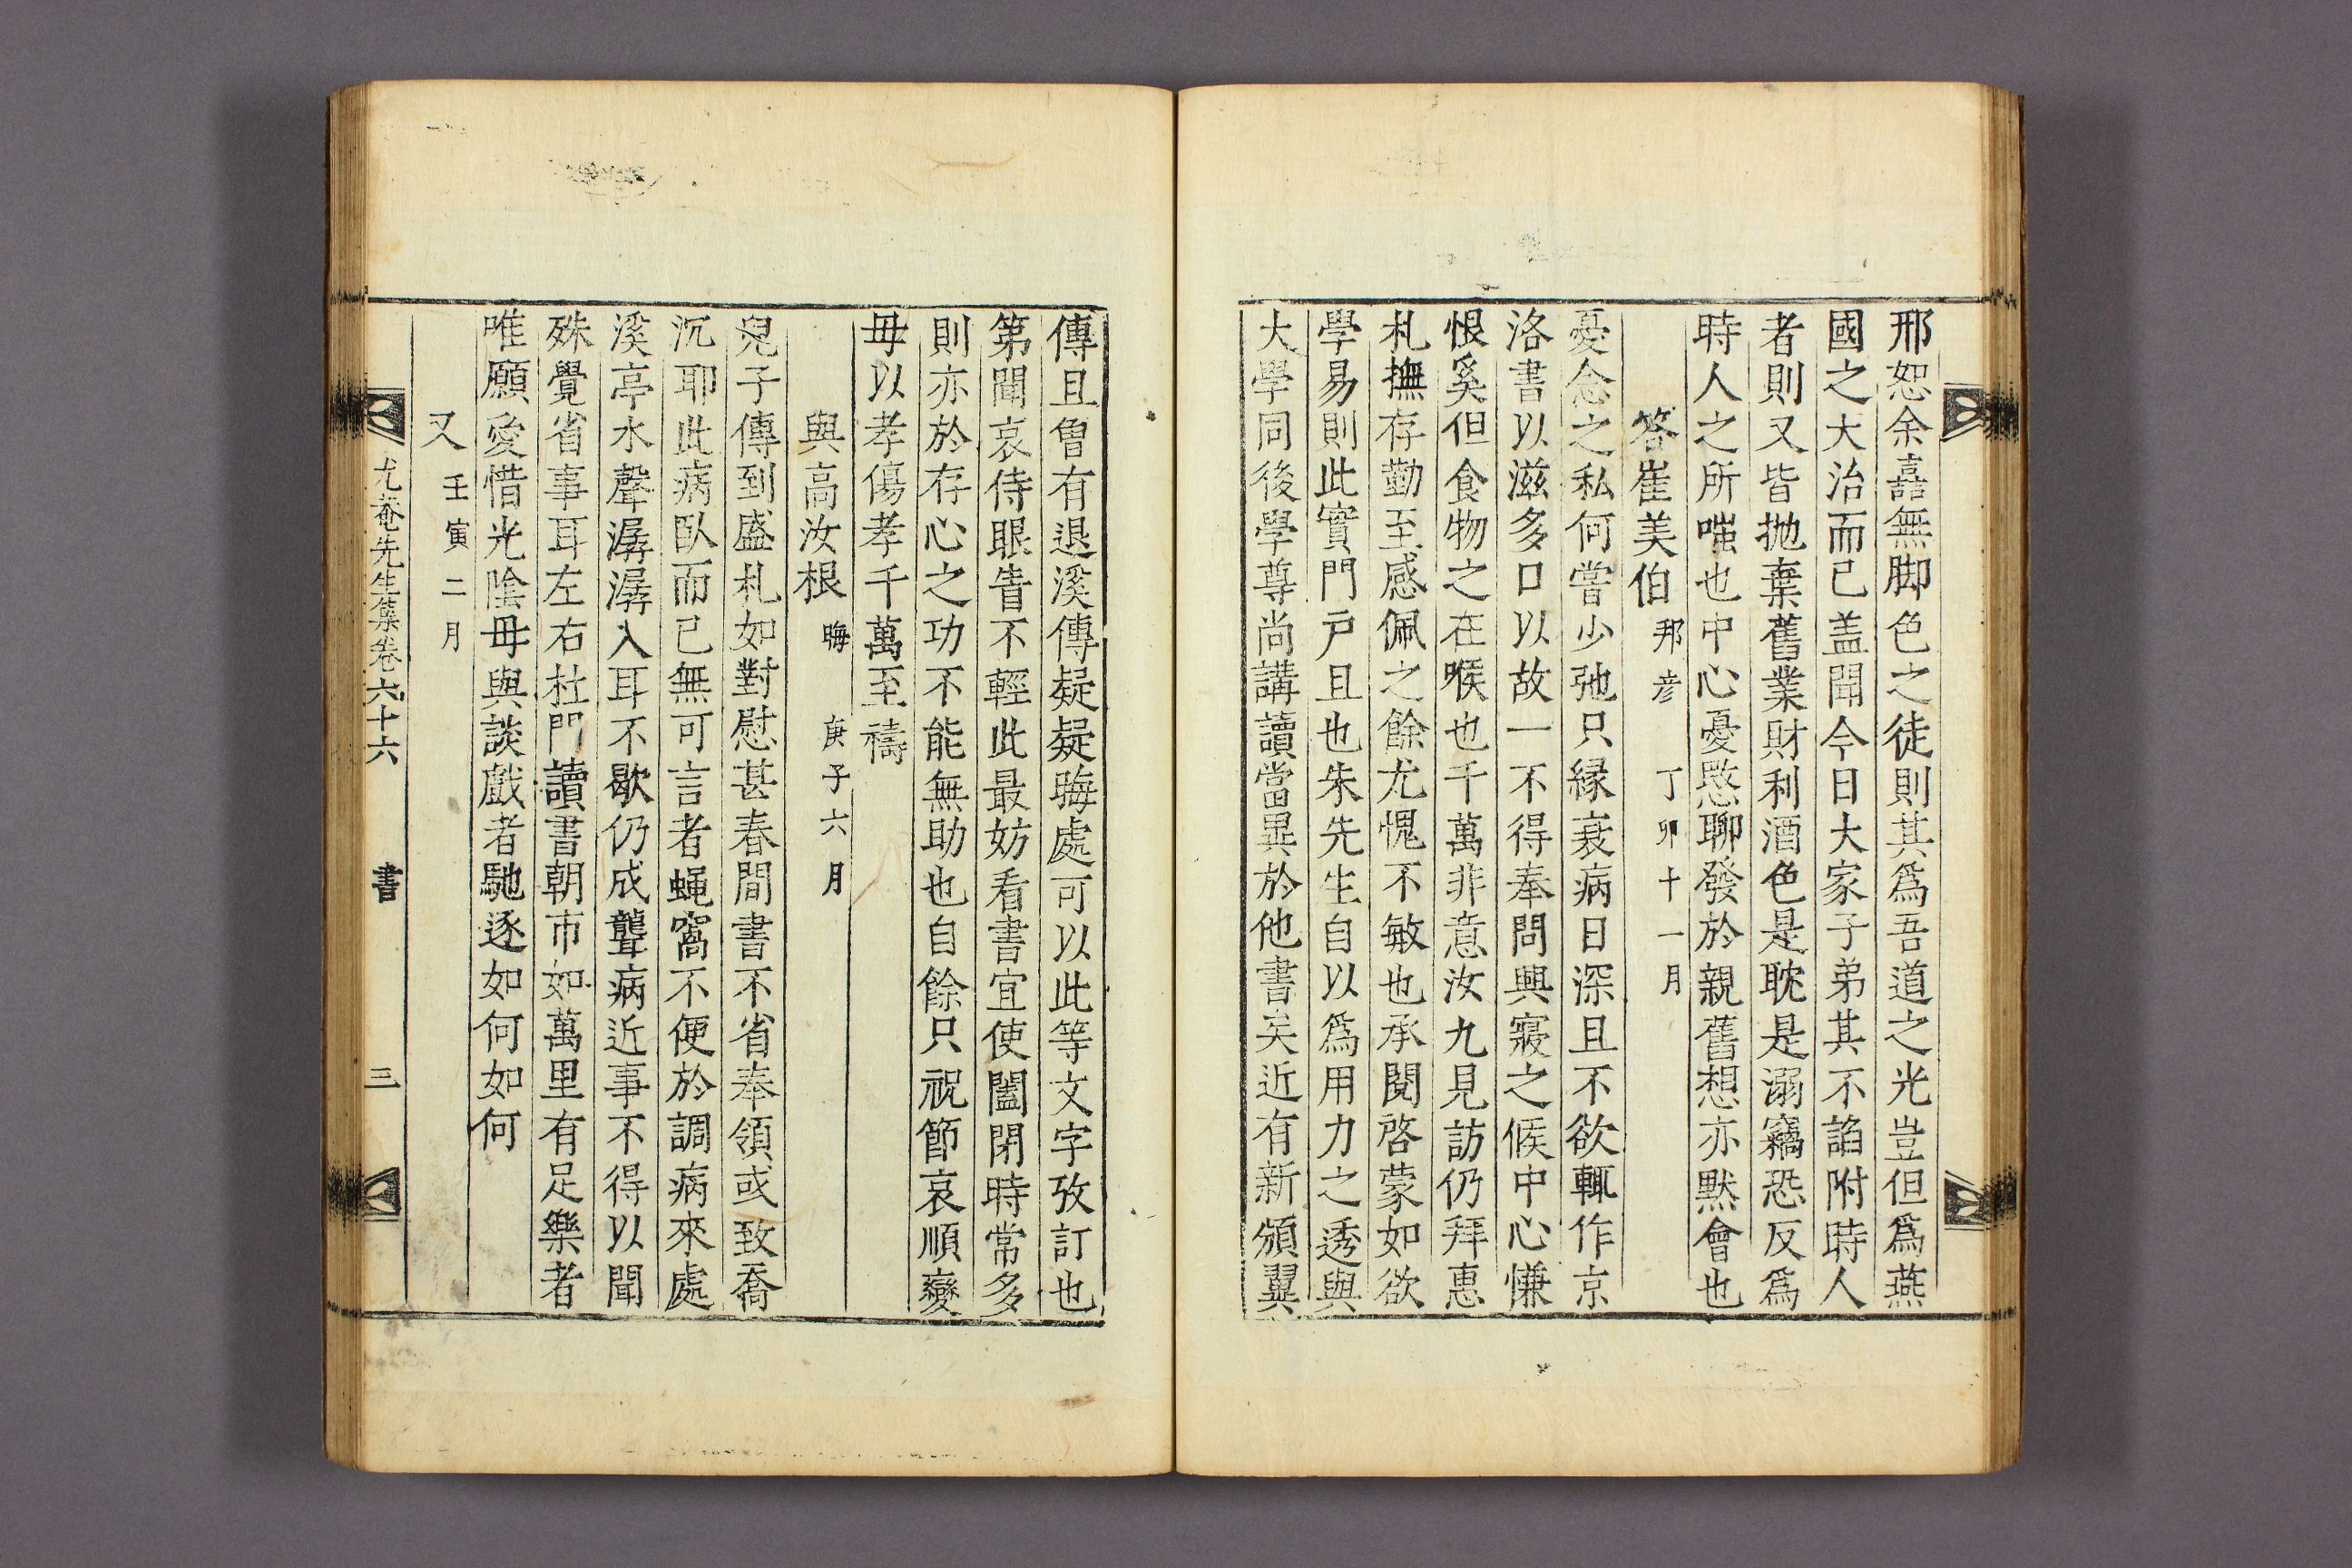 邢恕余嚞無脚色之徒則其爲吾道之光豈但爲燕
國之大治而已盖聞今日大家子弟其不諂附時人
者則又皆抛棄舊業財利酒色是耽是溺竊恐反爲
時人之所嗤也中心憂愍聊發於親舊想亦黙會也
答崔美伯 邦彦 丁卯十一月
憂念之私何嘗少弛只縁衰病日深且不欲輒作京
洛書以滋多口以故一不得奉問興寢之候中心慊
恨奚但食物之在喉也千萬非意汝九見訪仍拜惠
札撫存勤至感佩之餘尤愧不敏也承閱啓蒙如欲
學易則此實門户且也朱先生自以爲用力之透與
大學同後學尊尚講讀當異於他書矣近有新頒翼
傳且魯有退溪傳疑疑晦處可以此等文字攷訂也
第聞哀侍眼眚不輕此最妨看書宜使闔閉時常多
則亦於存心之功不能無助也自餘只祝節哀順變
毋以孝傷孝千萬至禱
與高汝根 晦 庚子六月
兒子傳到盛札如對慰甚春間書不省奉領或致喬
沉耶此病臥而已無可言者蝇窩不便於調病來處
溪亭水聲潺潺入耳不歇仍成聾病近事不得以聞
殊覺省事耳左右杜門讀書朝市如萬里有足樂者
唯願愛惜光陰毋與談戲者馳逐如何如何
又 壬寅二月
尤菴先生集卷六十六 書 三